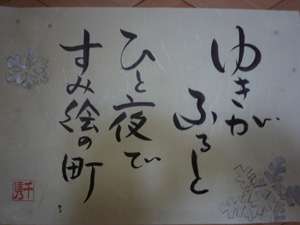 ゆきが
ふると
ひと夜で
すみ絵の町